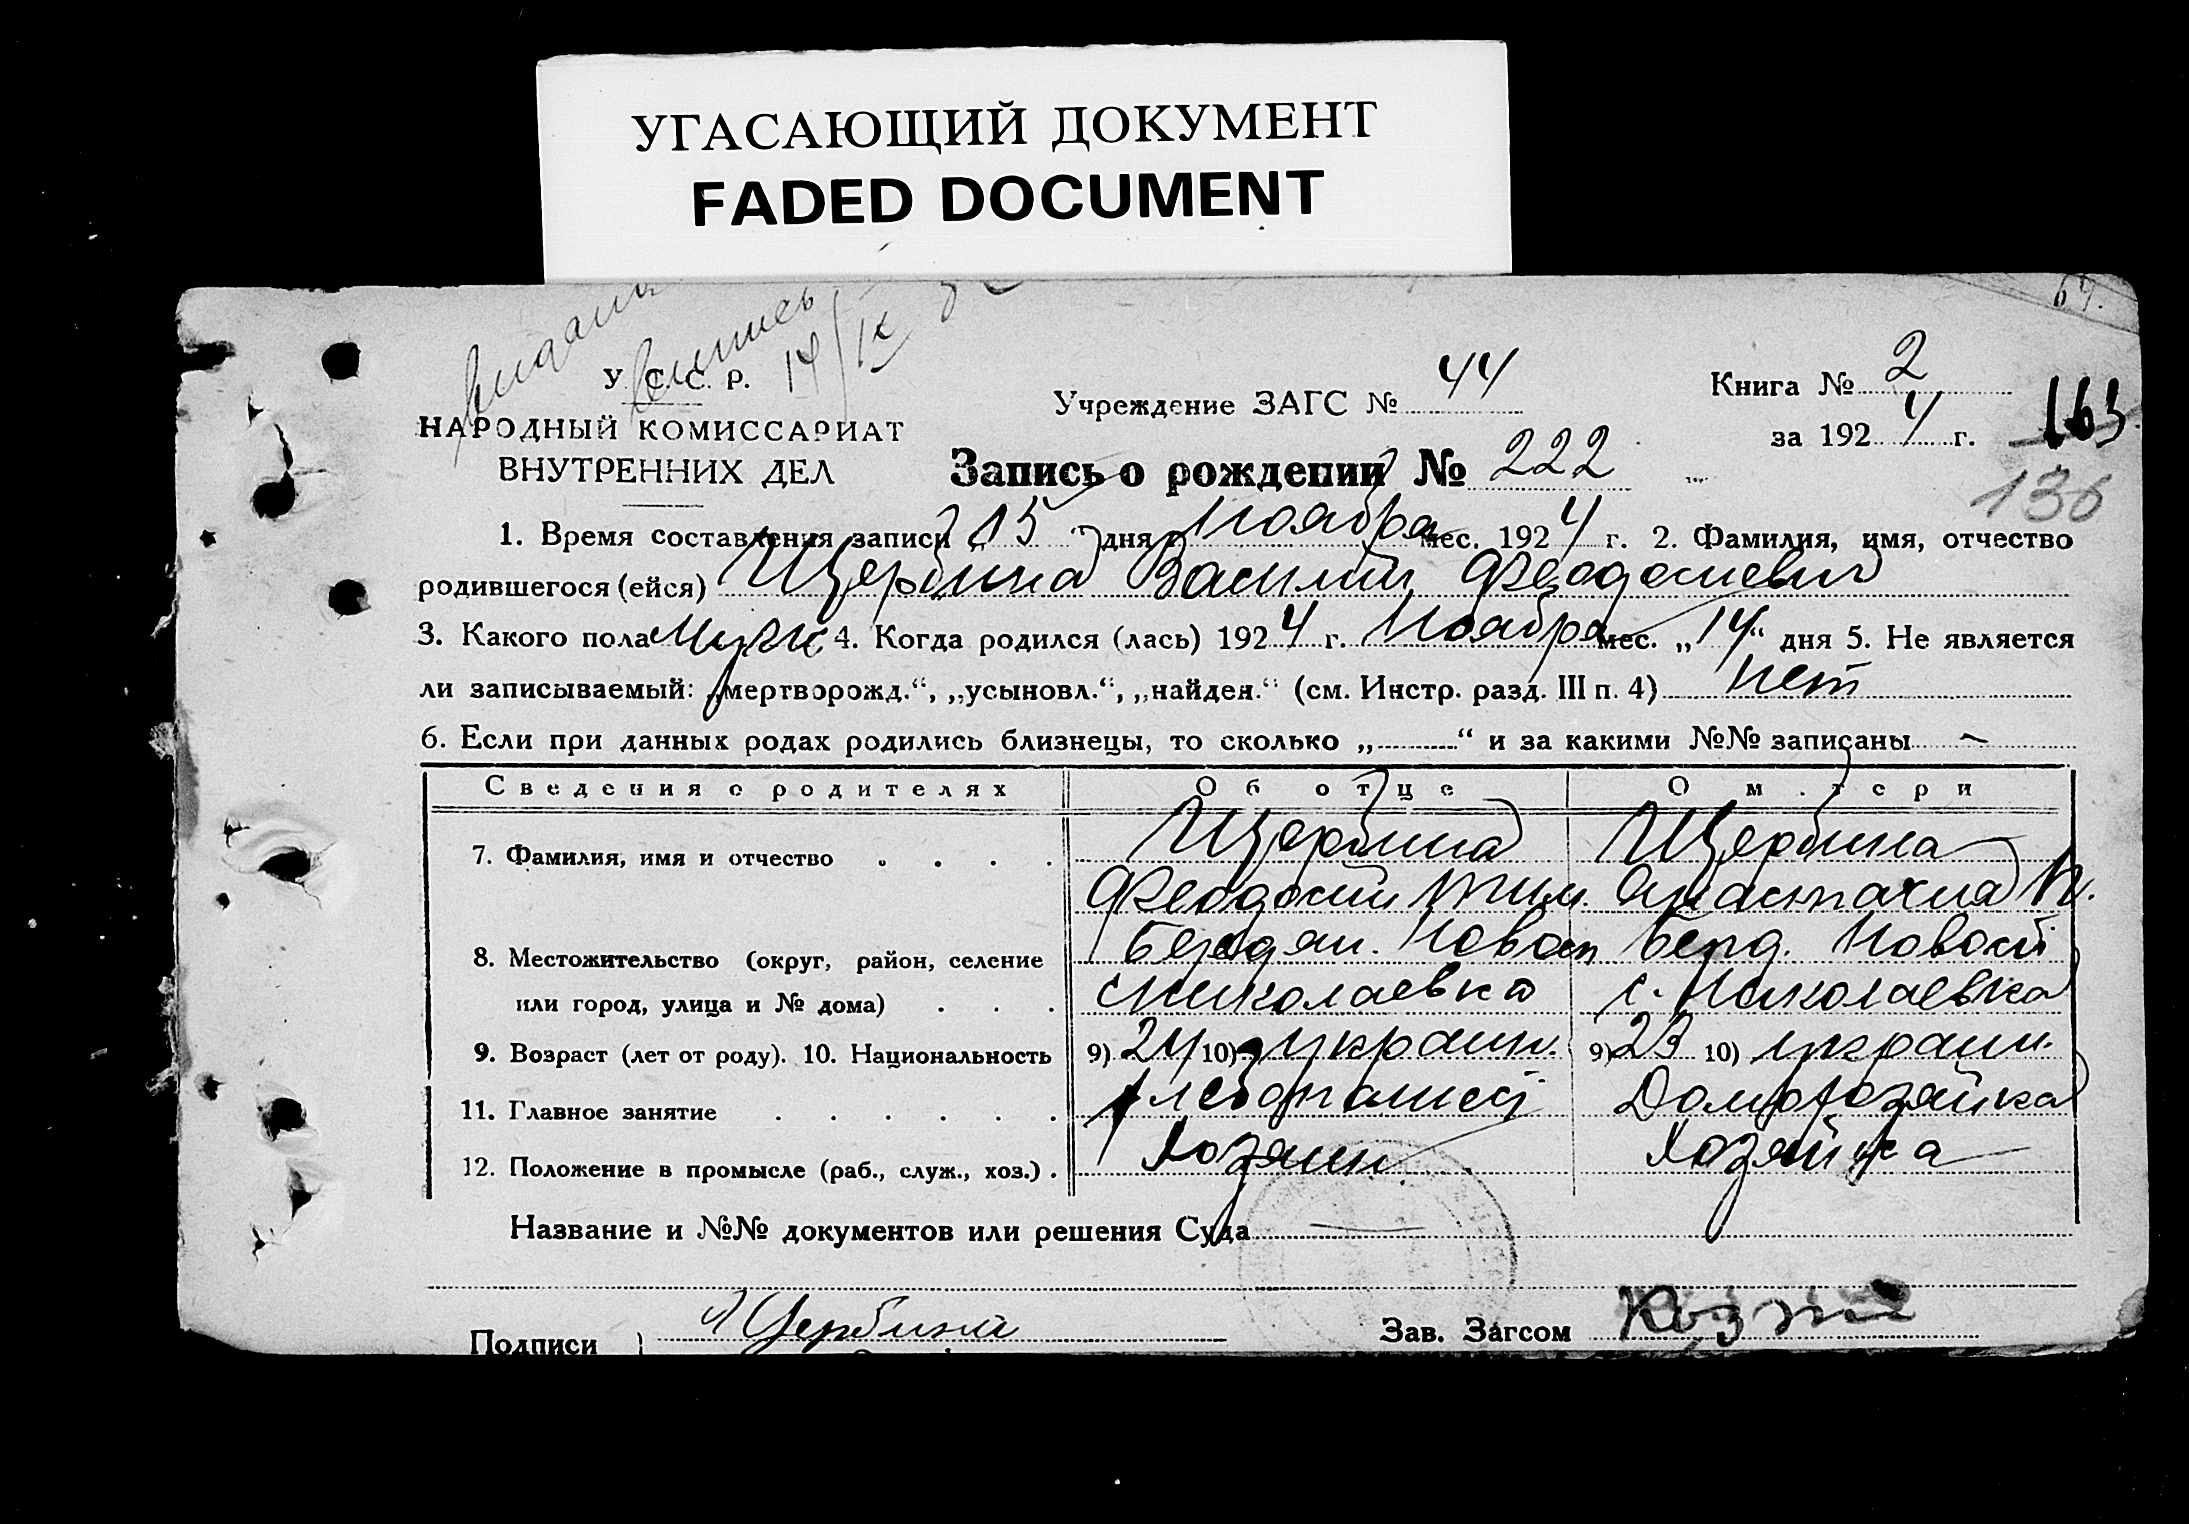 УГАСАЮЩИЙ ДОКУМЕНТ
FADED DOCUMENT
64.
14/IX
У. С. С. Р.
НАРОДНЫЙ КОМИССАРИАТ
ВНУТРЕННИХ ДЕЛ
Учреждение ЗАГС № 44
Книга № 2
за 1924 г.
163
136
Запись о рождении № 222
1. Время составления записи „15“ дня Ноября мес. 1924 г. 2. Фамилия, имя, отчество
родившегося (ейся) Щербина Василий Феодосиевич
3. Какого пола Муж 4. Когда родился (лась) 1924 г. Ноября мес. „14“ дня 5. Не является
ли записываемый: „мертворожд.“, „усыновл.“, „найден.“ (см. Инстр. разд. III п. 4) нет
6. Если при данных родах родились близнецы, то сколько „..........“ и за какими №№ записаны —
Сведения о родителях Об отце О матери
7. Фамилия, имя и отчество . . . . Щербина Щербина
Феодосий Тим. Анастасия
8. Местожительство (округ, район, селение Бердян. Новосп Берд. Новосп
или город, улица и № дома) . . . с Николаевка с. Николаевка
9. Возраст (лет от роду). 10. Национальность 9) 24 10) украин. 9) 23 10) украин.
11. Главное занятие . . . . . . Хлебопашец Домохозяйка
12. Положение в промысле (раб., служ., хоз.) . Хозяин Хозяйка
Название и №№ документов или решения Суда
Подписи } Щербина Зав. Загсом